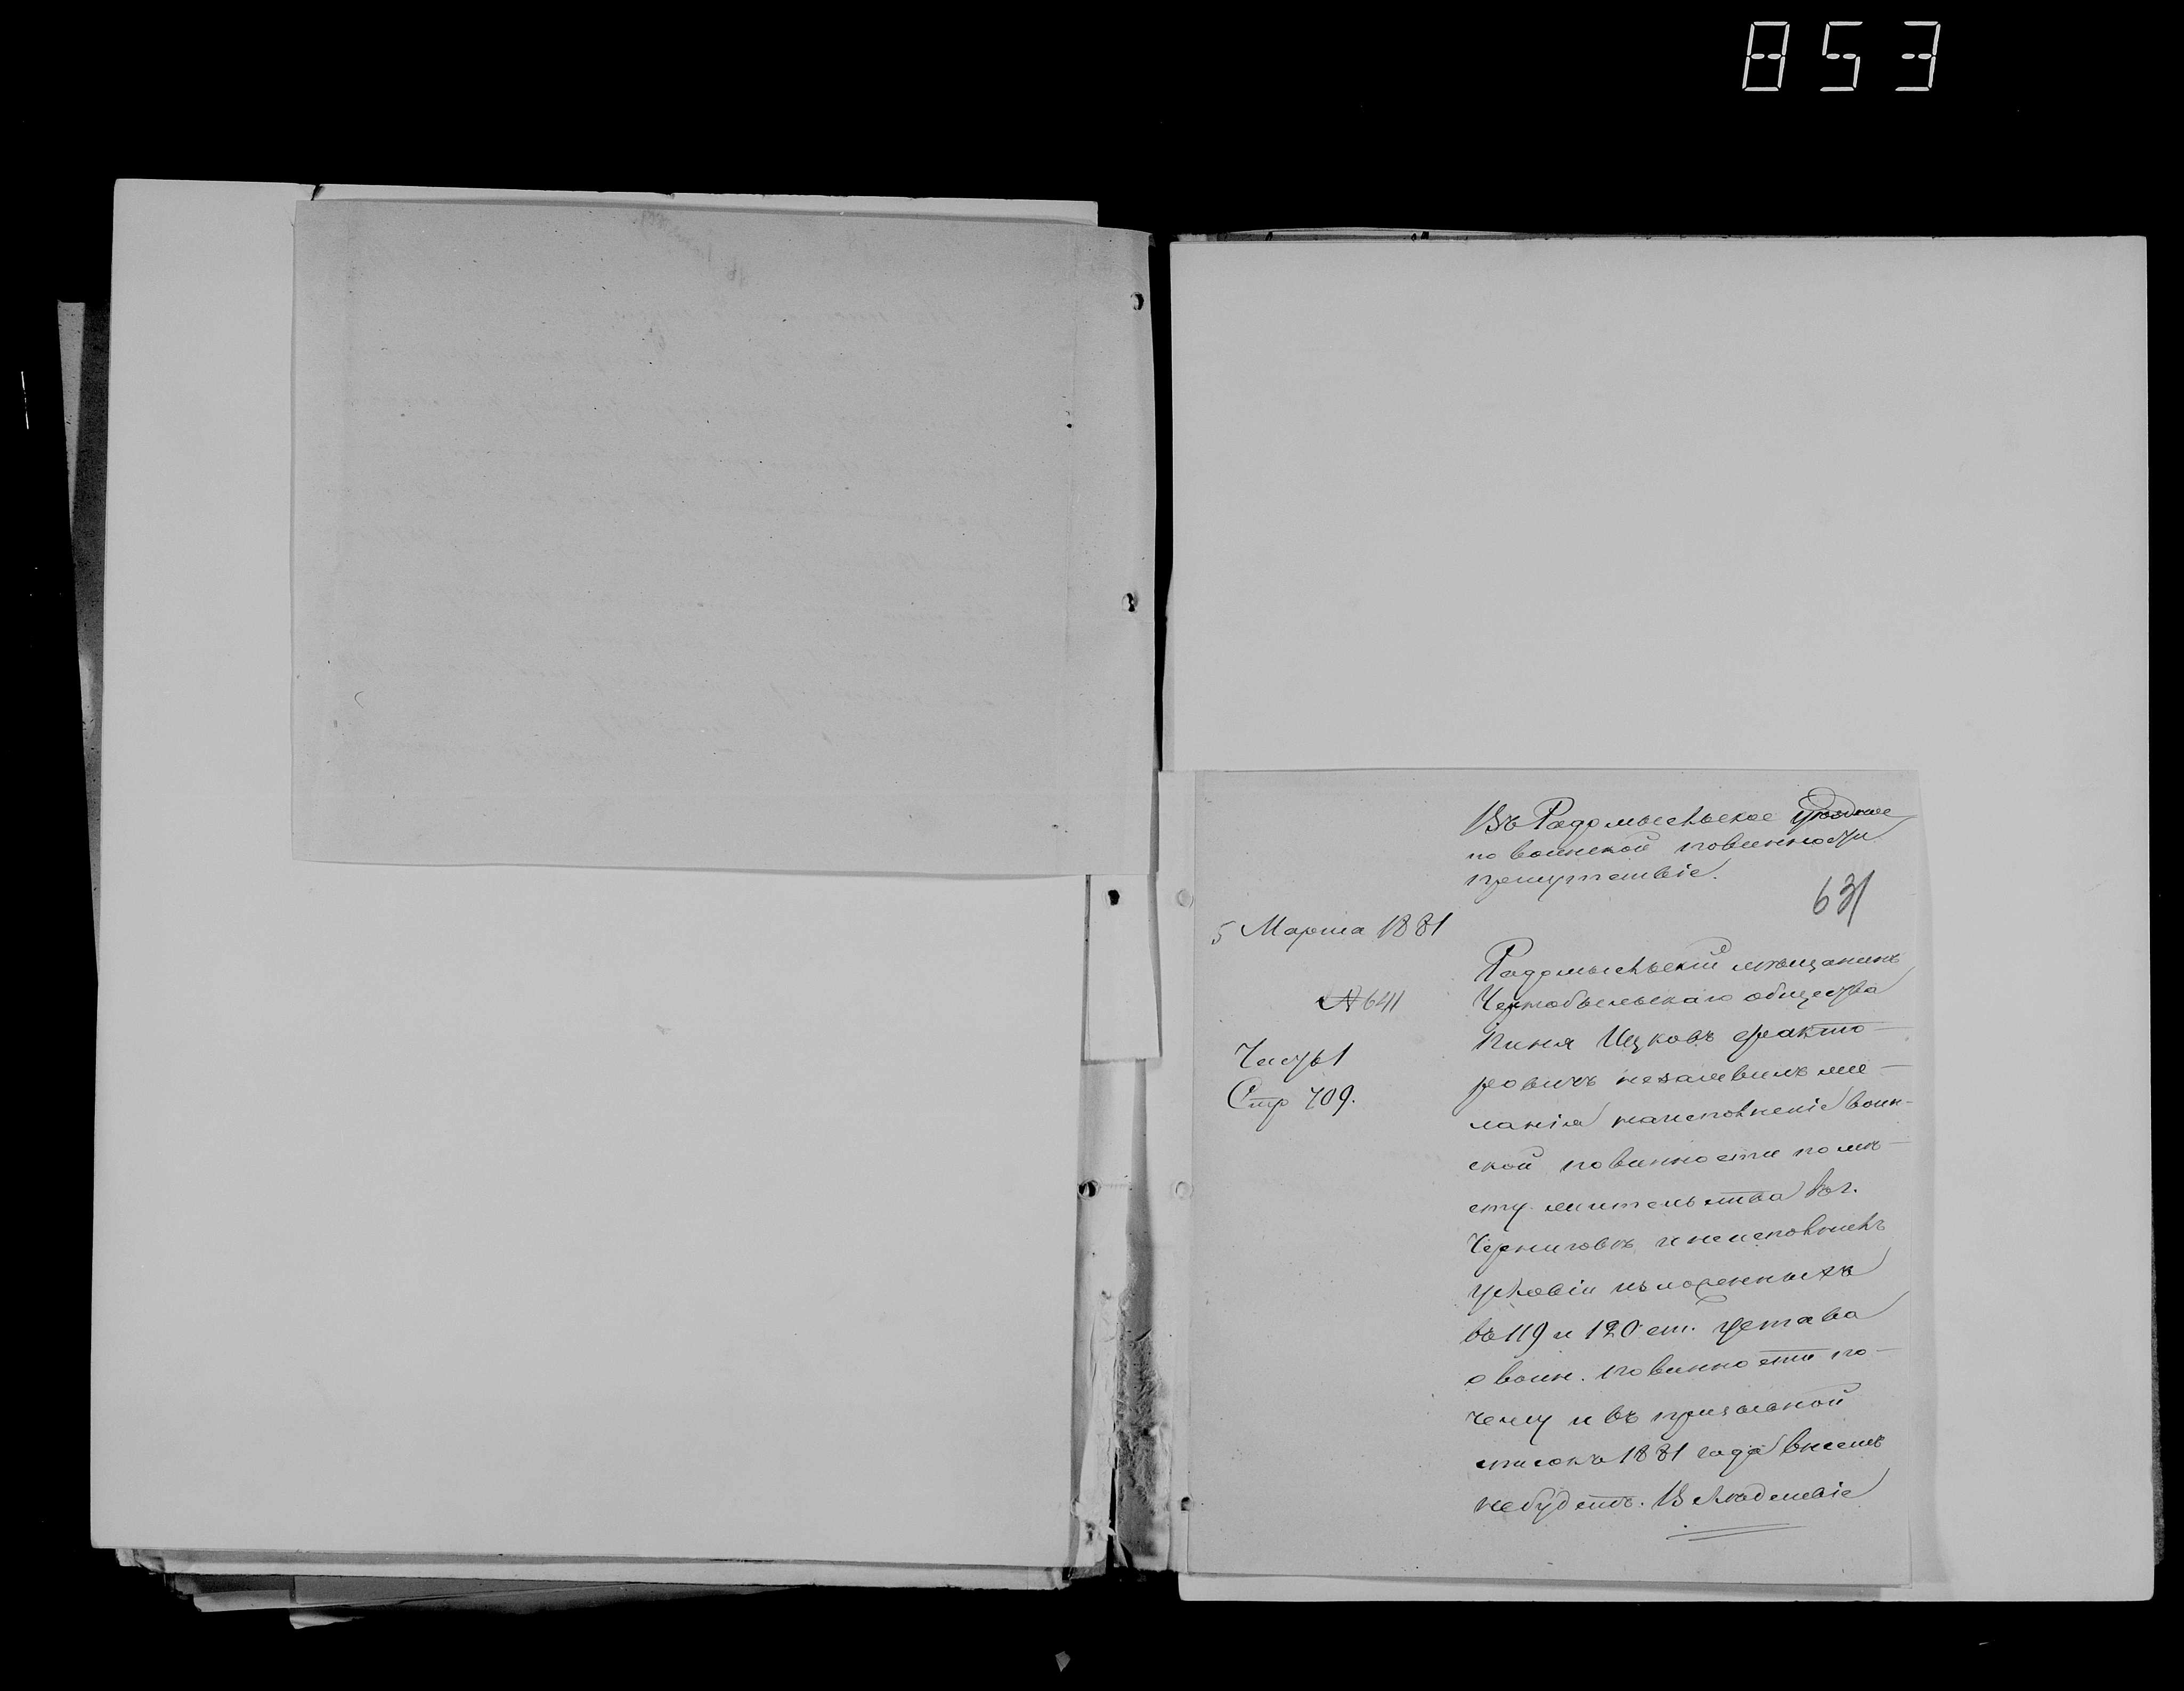 853
Въ Радомысльское уѣздное
по воинской повинности
присутствіе.
631
5 Марта 1881
№ 641
Часть 1
Стр 709.
Радомысльскій мѣщанинъ
Чернобыльскаго общества
Пиня Ицковъ Факто-
ровичъ незаявилъ же-
ланія наисполненіе воин-
ской повинности помѣ-
сту жительства въ г.
Черниговѣ, и неисполнилъ
условіи изложенныхъ
въ 119 и 120 ст. Устава
о воин. повинности по-
чему и въ призывной
списокъ 1881 года внесенъ
небудетъ. Вслѣдствіе